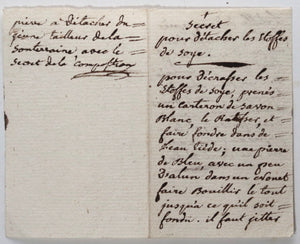 pierre à détacher du
jeune tailleur de la
Souteraine avec le
Secret de la Composition
Secret
pour détacher les Etoffes
de Soye.
pour dicrasser les
Etoffes de Soye, prenés
un carteron de savon
Blanc, le Ratisser et
faire fondre dans de
Leau tiede, une pierre
de Bleu, avec un peu
Dalun dans un
faire Bouillir le tout
jusqua ce quil soit
fondu. il faut jetter